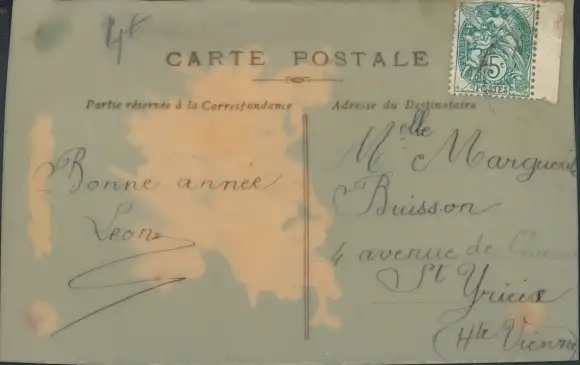 4f
CARTE POSTALE
5c
POSTES
Partie réservée à la Correspondance
Adresse du Destinataire
Bonne année
Leon
Melle
Buisson
4 avenue de
St Yrieix
(Hte Vienne